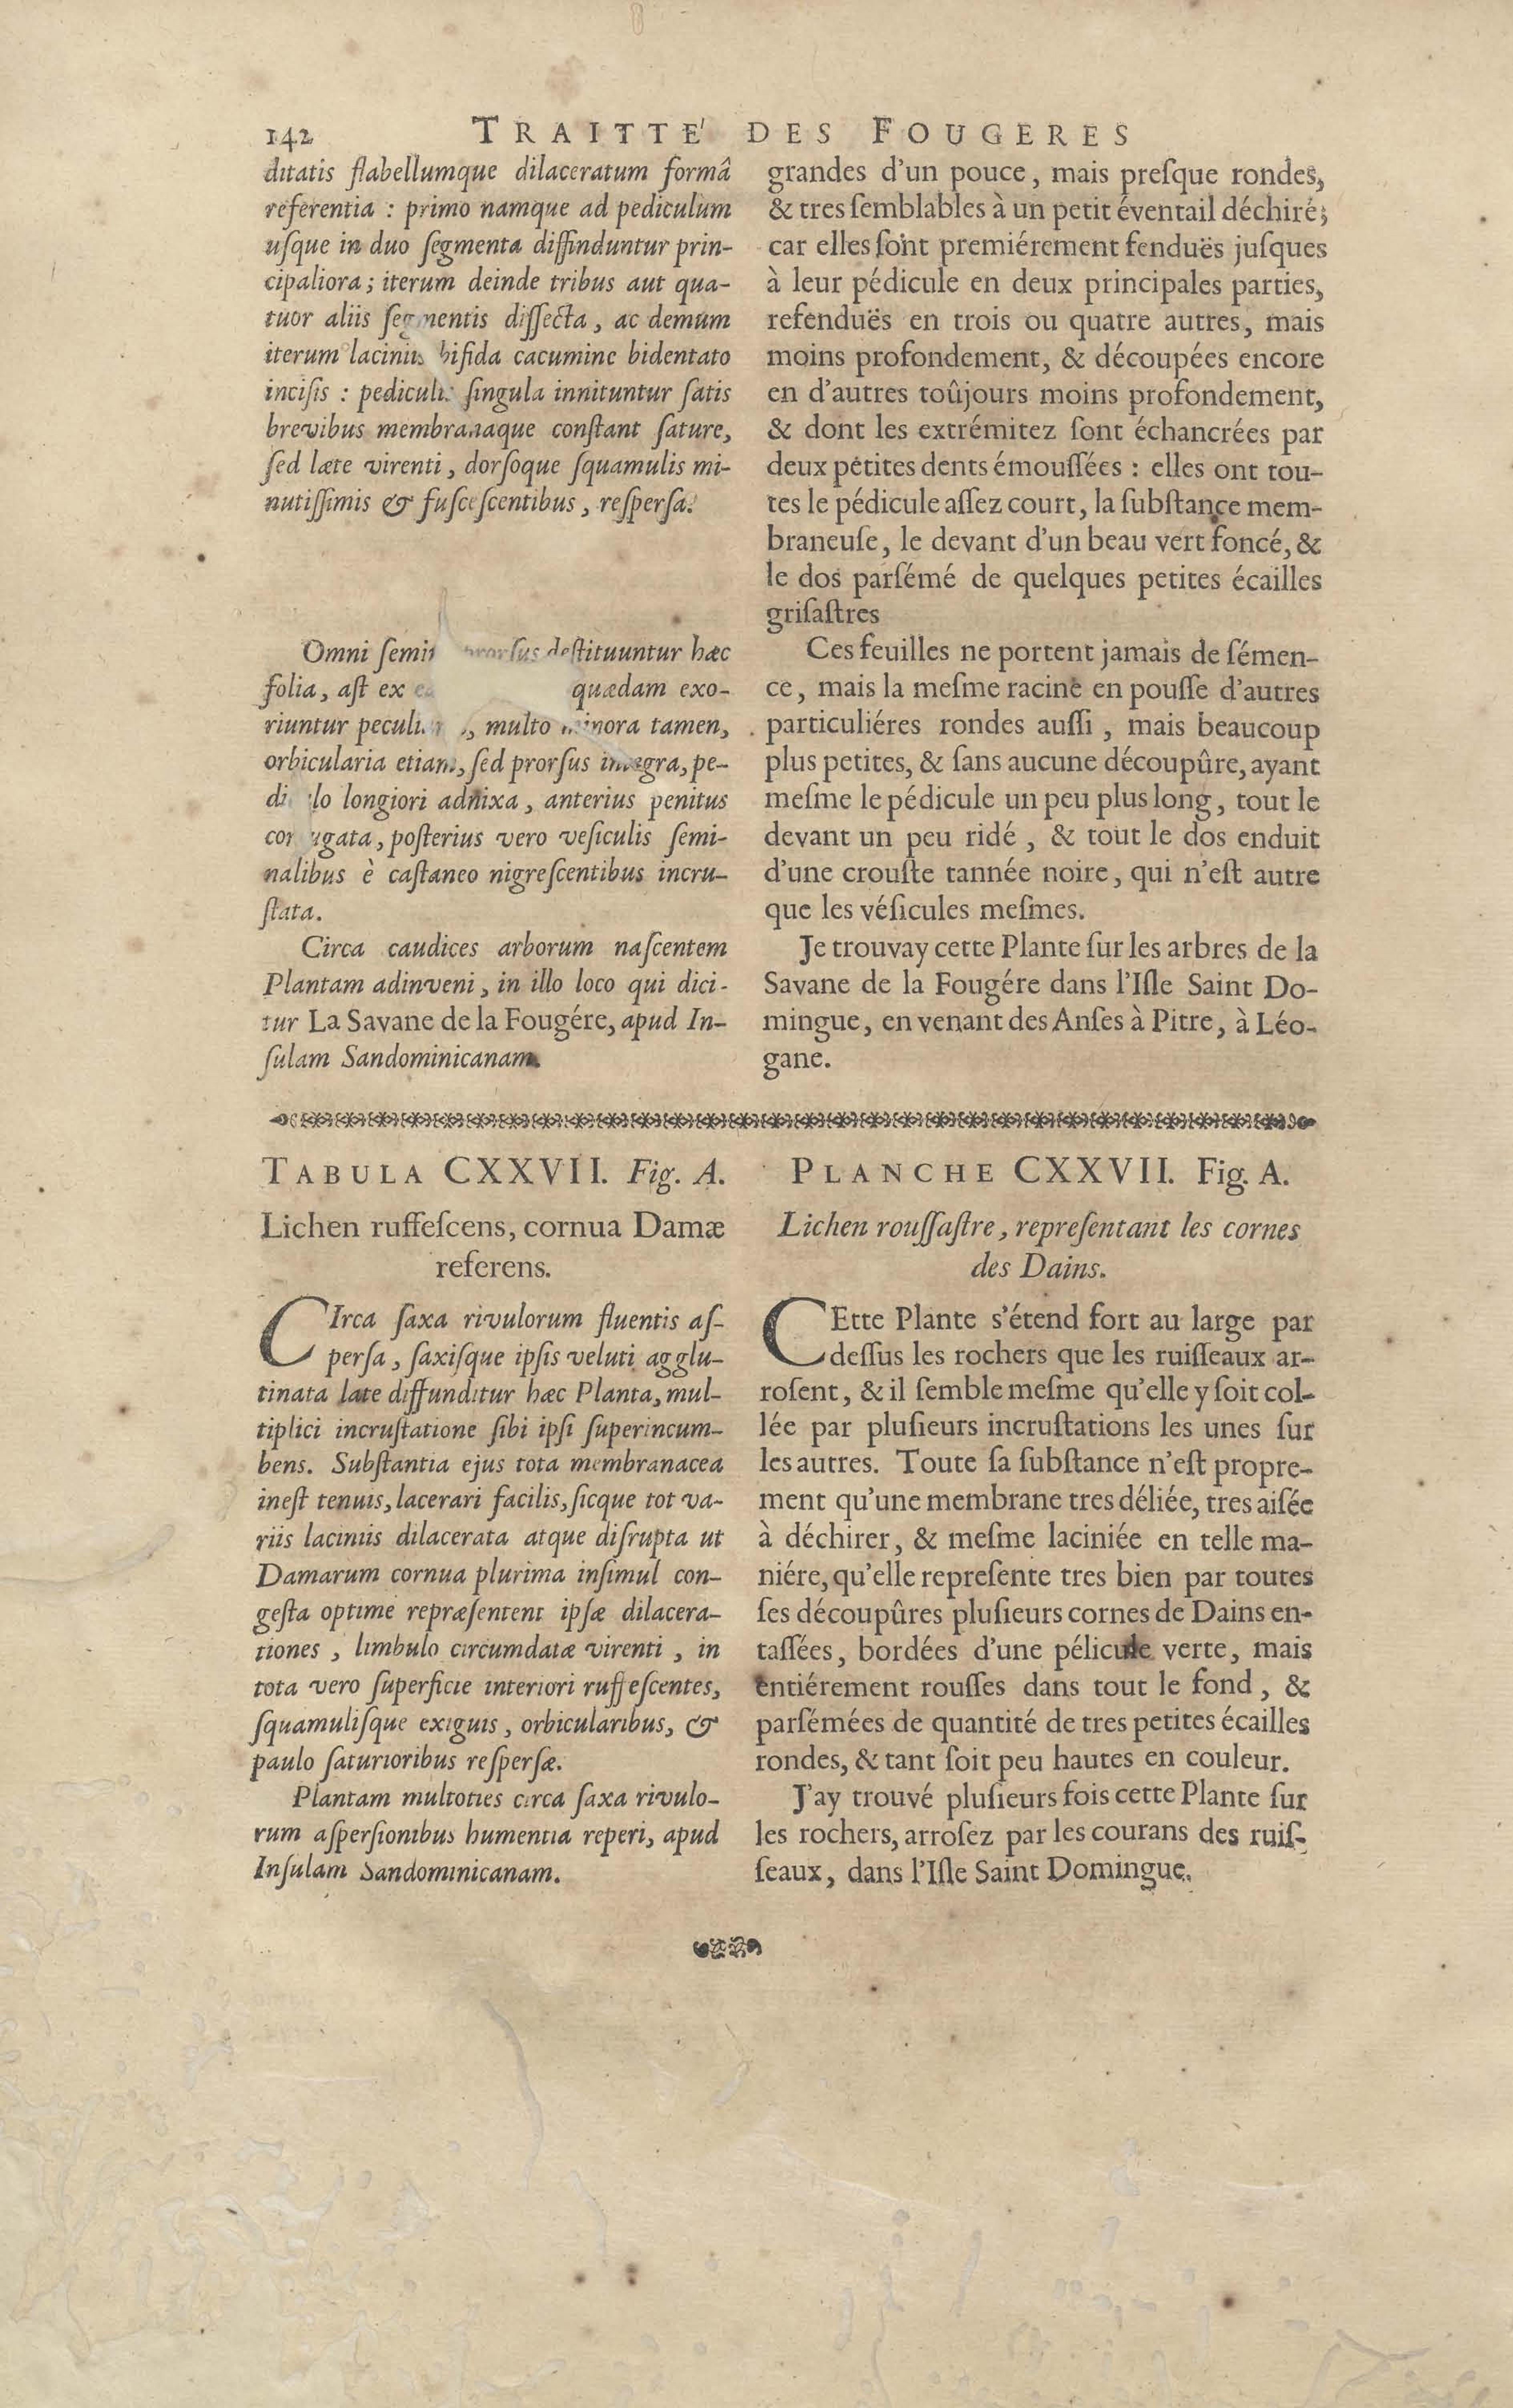 142 TRAITTE' DES FOUGERES
ditatis flabellumque dilaceratum formâ
referentia : primo namque ad pediculum
uſque in duo ſegmenta diffinduntur prin-
cipaliora ; iterum deinde tribus aut qua-
tuor aliis ſegmentis diſſecta , ac demum
iterum bifida cacumine bidentato
inciſis : ſingula innituntur ſatis
brevibus membranaque conſtant ſature,
ſed læte virenti , dorſoque ſquamulis mi-
nutiſſimis & fuſceſcentibus , reſperſa.
Omni prorſus deſtituuntur hæc
folia, aſt ex quædam exo-
riuntur multo minora tamen,
orbicularia etiam, ſed prorſus integra, pe-
lo longiori adnixa , anterius penitus
poſterius vero veſiculis ſemi-
nalibus è caſtaneo nigreſcentibus incru-
ſtata.
Circa caudices arborum naſcentem
Plantam adinveni , in illo loco qui dici-
tur La Savane de la Fougére, apud In-
ſulam Sandominicanam.
grandes d'un pouce , mais preſque rondes,
& tres ſemblables à un petit éventail déchiré;
car elles ſont premiérement fenduës juſques
à leur pédicule en deux principales parties,
refenduës en trois ou quatre autres, mais
moins profondement, & découpées encore
en d'autres toûjours moins profondement,
& dont les extrémitez ſont échancrées par
deux petites dents émouſſées : elles ont tou-
tes le pédicule aſſez court, la ſubſtance mem-
braneuſe, le devant d'un beau vert foncé, &
le dos parſémé de quelques petites écailles
griſaſtres
Ces feuilles ne portent jamais de ſémen-
ce, mais la meſme racine en pouſſe d'autres
particuliéres rondes auſſi , mais beaucoup
plus petites, & ſans aucune découpûre, ayant
meſme le pédicule un peu plus long, tout le
devant un peu ridé , & tout le dos enduit
d'une crouſte tannée noire, qui n'eſt autre
que les véſicules meſmes.
Je trouvay cette Plante ſur les arbres de la
Savane de la Fougére dans l'Iſle Saint Do-
mingue, en venant des Anſes à Pitre, à Léo-
gane.
TABULA CXXVII. Fig. A.
Lichen ruffeſcens, cornua Damæ
referens.
CIrca ſaxa rivulorum fluentis aſ-
perſa, ſaxiſque ipſis veluti agglu-
tinata late diffunditur hæc Planta, mul-
tiplici incruſtatione ſibi ipſi ſuperincum-
bens. Subſtantia ejus tota membranacea
ineſt tenuis, lacerari facilis, ſicque tot va-
riis laciniis dilacerata atque diſrupta ut
Damarum cornua plurima inſimul con-
geſta optime repræſentent ipſæ dilacera-
tiones , limbulo circumdatæ virenti , in
tota vero ſuperficie interiori ruffeſcentes,
ſquamuliſque exiguis , orbicularibus, &
paulo ſaturioribus reſperſæ.
Plantam multoties circa ſaxa rivulo-
rum aſperſionibus humentia reperi, apud
Inſulam Sandominicanam.
PLANCHE CXXVII. Fig. A.
Lichen rouſſaſtre, repreſentant les cornes
des Dains.
CEtte Plante s'étend fort au large par
deſſus les rochers que les ruiſſeaux ar-
roſent, & il ſemble meſme qu'elle y ſoit col-
lée par pluſieurs incruſtations les unes ſur
les autres. Toute ſa ſubſtance n'eſt propre-
ment qu'une membrane tres déliée, tres aiſée
à déchirer, & meſme laciniée en telle ma-
niére, qu'elle repreſente tres bien par toutes
ſes découpûres pluſieurs cornes de Dains en-
taſſées, bordées d'une pélicule verte, mais
entiérement rouſſes dans tout le fond , &
parſémées de quantité de tres petites écailles
rondes, & tant ſoit peu hautes en couleur.
J'ay trouvé pluſieurs fois cette Plante ſur
les rochers, arroſez par les courans des ruiſ-
ſeaux, dans l'Iſle Saint Domingue.